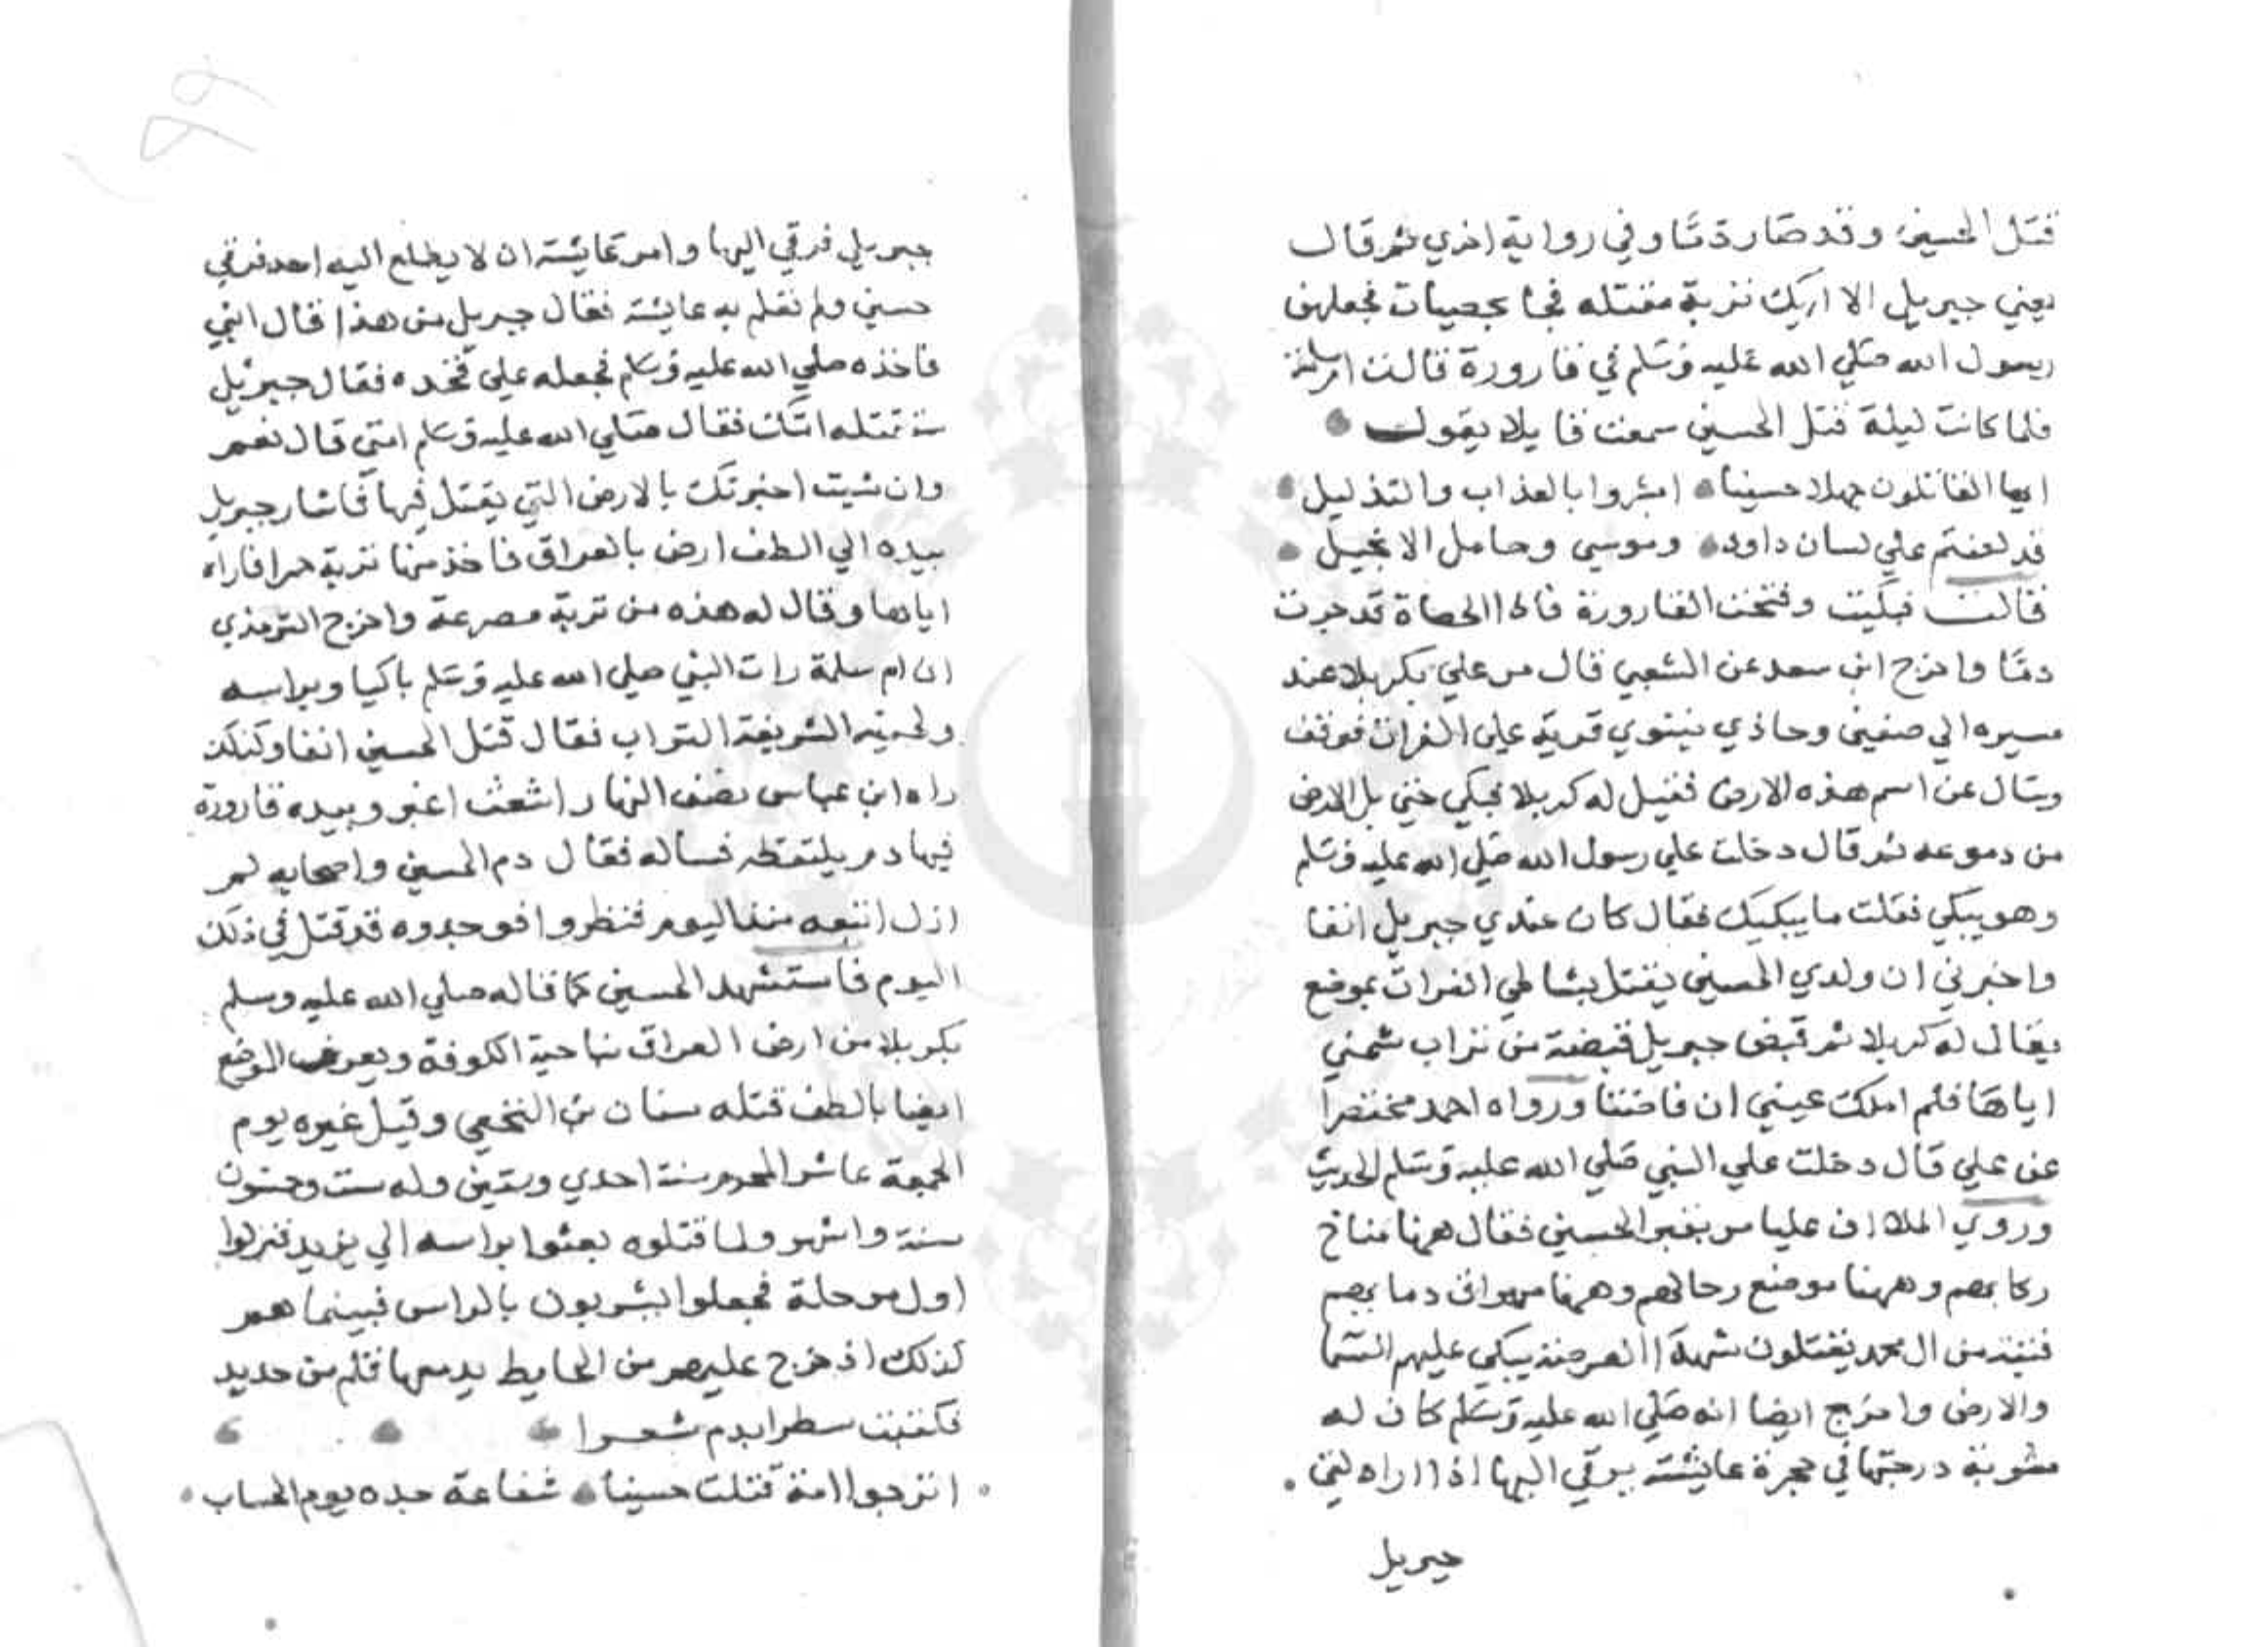 قتل الحسين وقد صار دمّا وفي رواية اخري ثم قال
يعني جبريل الا اريك تربة مقتله فجا بحصيات فجعلهن
رسول الله صلي الله عليه وسلم في قارورة قالت ام سلمة
فلما كانت ليلة قتل الحسين سمعت قايلا يقول
ايها القاتلون جهلا حسينا ابشروا بالعذاب والتذليل
قد لعنتم علي لسان داود وموسي وحامل الانجيل
قالت فبكيت وفتحت القارورة فاذا الحصاة قد جرت
دمّا واخرج ابن سعد عن الشعبي قال مر علي بكربلا عند
مسيره الي صفين وحاذي نينوي قرية علي الفرات فوقف
وسال عن اسم هذه الارض فقيل له كربلا فبكي حتي بل الارض
من دموعه ثم قال دخلت علي رسول الله صلي الله عليه وسلم
وهو يبكي فقلت ما يبكيك فقال كان عندي جبريل انفا
واخبرني ان ولدي الحسين يقتل بشاطي الفرات بموضع
يقال له كربلا ثم قبض جبريل قبضة من تراب شمني
اياها فلم املك عيني ان فاضتا ورواه احمد مختصرا
عن علي قال دخلت علي النبي صلي الله عليه وسلم الحديث
وروي الملا ان عليا مر بقبر الحسين فقال ههنا مناخ
ركابهم وههنا موضع رحالهم وههنا مهراق دمايهم
فتية من ال محمد يقتلون بهذا العرصة يبكي عليهم السما
والارض واخرج ايضا انه صلي الله عليه وسلم كان له
مشربة درجتها في حجرة عايشة يرقي اليها اذا اراد لقي
جبريل
جبريل فرقي اليها وامر عايشة ان لا يطلع اليه احد فرقي
حسين ولم تعلم به عايشة فقال جبريل من هذا قال ابني
فاخذه صلي الله عليه وسلم فجعله علي فخده فقال جبريل
ستقتله امتك فقال صلي الله عليه وسلم امتي قال نعم
وان شيت اخبرتك بالارض التي يقتل فيها فاشار جبريل
بيده الي الطف ارض بالعراق فاخذ منها تربة حمرا فاراه
اياها وقال له هذه من تربة مصرعة واخرج الترمذي
ان ام سلمة رات النبي صلي الله عليه وسلم باكيا وبراسه
ولحيته الشريفة التراب فقال قتل الحسين انفا وكذلك
راه ابن عباس نصف النهار اشعث اغبر وبيده قارورة
فيها دم يلتقطه فساله فقال دم الحسين واصحابه لم
ازل اتتبعه منذ اليوم فنظروا فوجدوه قد قتل في ذلك
اليوم فاستشهد الحسين كما قاله صلي الله عليه وسلم
بكربلا من ارض العراق بناحية الكوفة ويعرف الموضع
ايضا بالطف قتله سنان بن النخعي وقيل غيره يوم
الجمعة عاشر المحرم سنة احدي وستين وله ست وخمسون
سنة واشهر ولما قتلوه بعثوا براسه الي يزيد فنزلوا
اول مرحلة فجعلوا يشربون بالراس فبينما هم
كذلك اذ خرج عليهم من الحايط يد معها قلم من حديد
فكتبت سطرا بدم شعرا
اترجوا امة قتلت حسينا شفاعة جده يوم الحساب